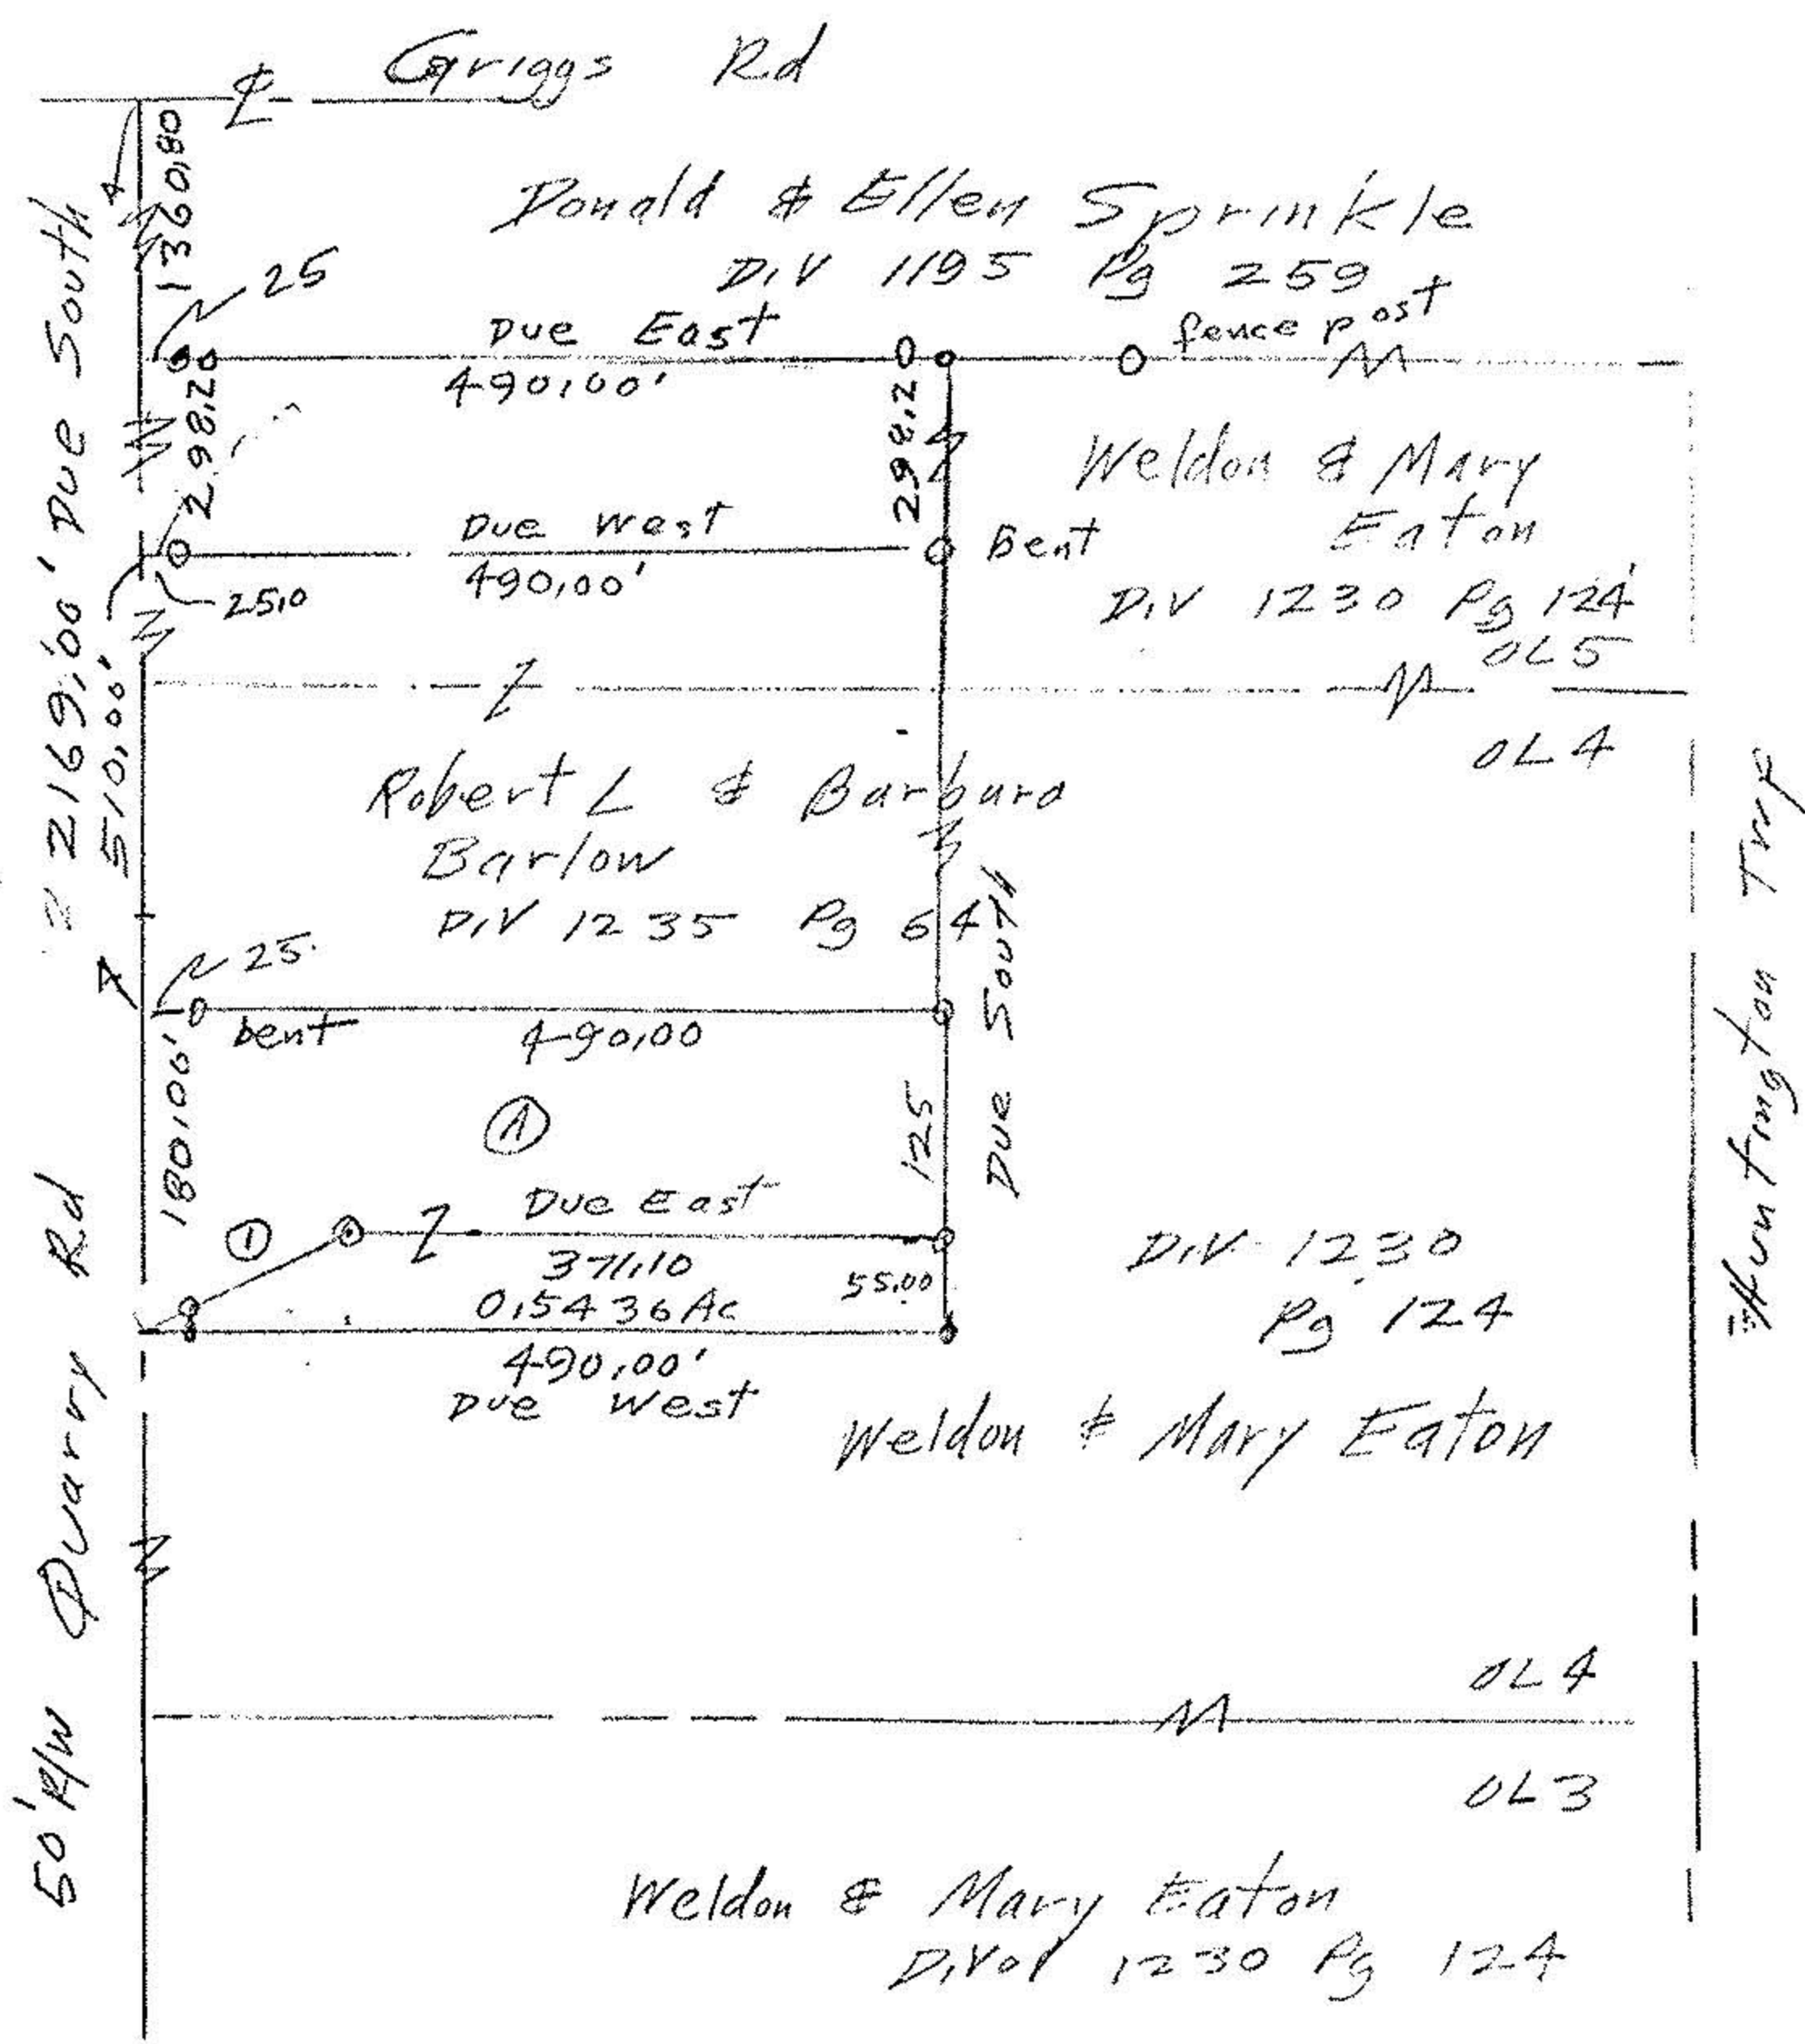 Griggs Rd
℄
1360.80
Donald & Ellen Sprinkle
D.V 1195 Pg 259
25
Due East
490.00'
fence post
298.20
298.2
Weldon & Mary
Eaton
D.V 1230 Pg 124
OL5
Due West
490.00'
Bent
25.0
2169.00' Due South
510.00'
OL4
Robert L & Barbara
Barlow
D.V 1235 Pg 64
25
bent
490.00
Due South
180.00'
A
125
1
Due East
371.10
0.5436 Ac
55.00
490.00'
Due West
D.V. 1230
Pg 124
Weldon & Mary Eaton
Huntington Twp
50' R/W Quarry Rd
OL4
OL3
Weldon & Mary Eaton
D.Vol 1230 Pg 124